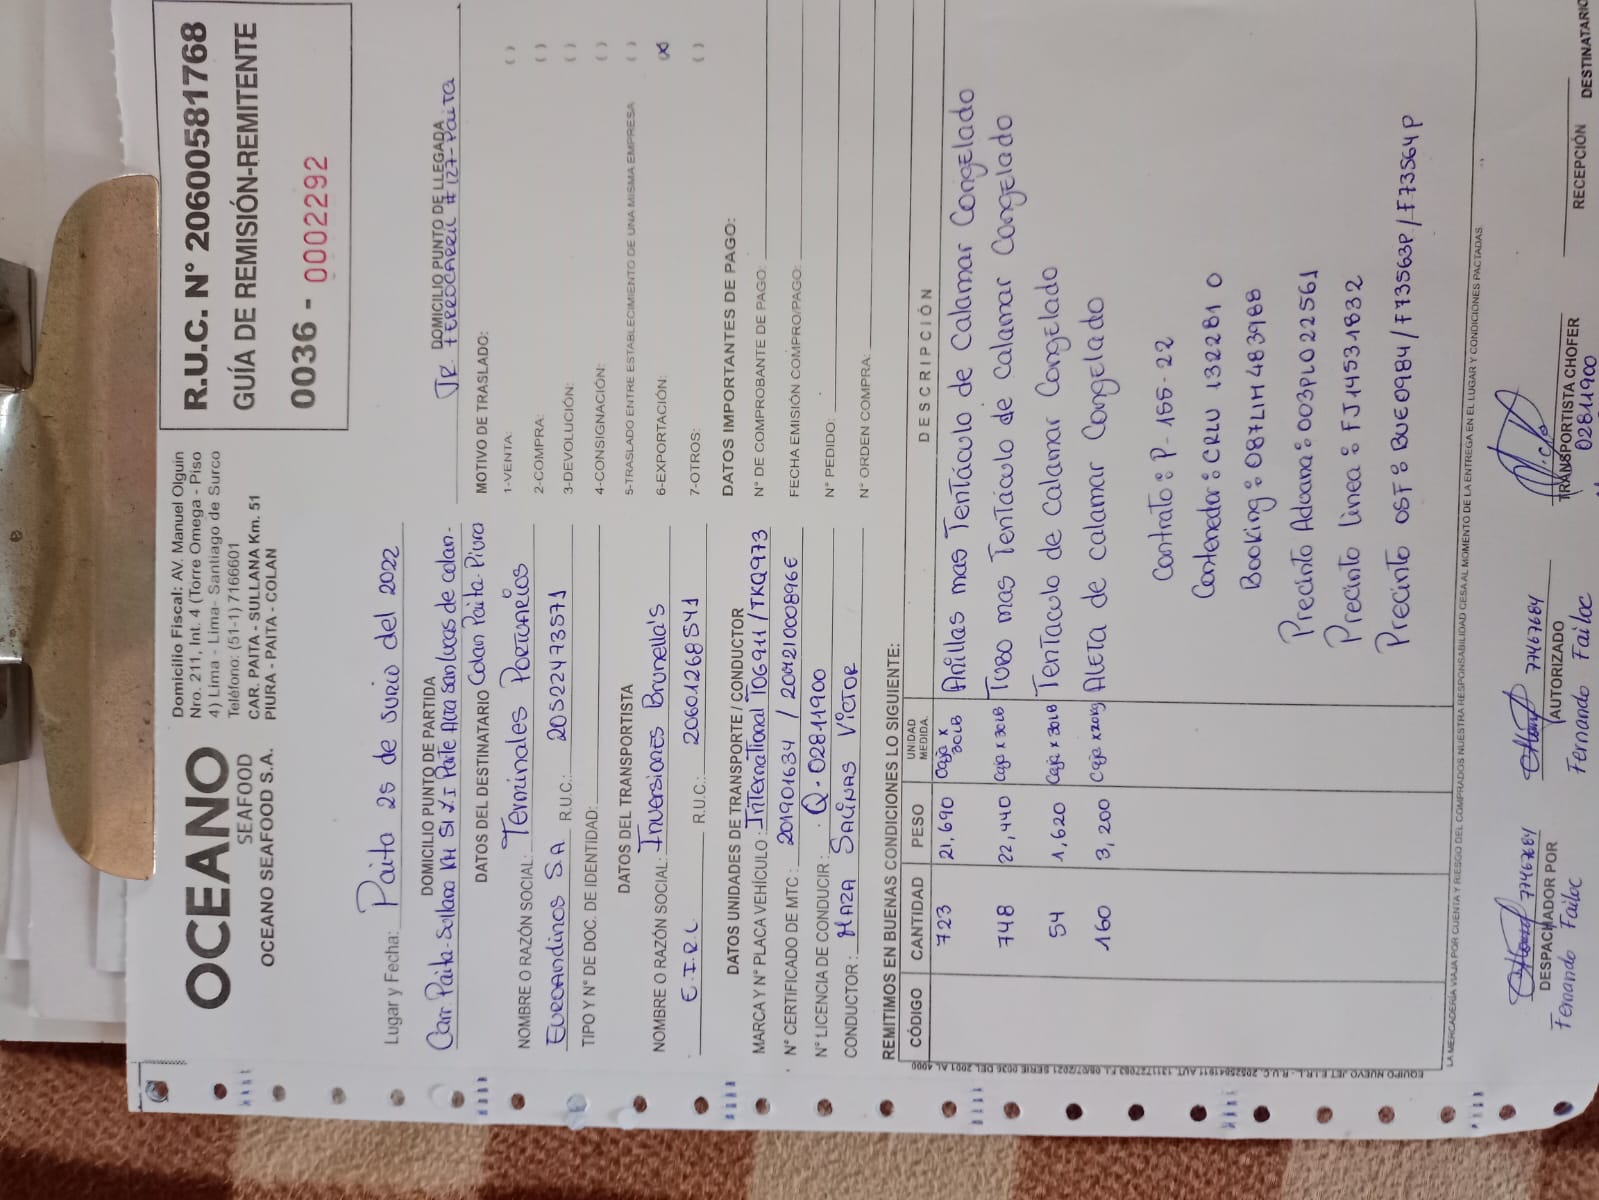 OCEANO
SEAFOOD
OCEANO SEAFOOD S.A.
Domicilio Fiscal: AV. Manuel Olguin
Nro. 211, Int. 4 (Torre Omega - Piso
4) Lima - Lima- Santiago de Surco
Teléfono: (51-1) 7166601
CAR. PAITA - SULLANA Km. 51
PIURA - PAITA - COLAN
R.U.C. N° 20600581768
GUÍA DE REMISIÓN-REMITENTE
0036 - 0002292
Lugar y Fecha: Paita 25 de Junio del 2022
DOMICILIO PUNTO DE PARTIDA
Carr. Paita-Sullana KM 51 Parte Alta San Lucas de Colan-
DOMICILIO PUNTO DE LLEGADA
Jr. Ferrocarril #127-Paita
DATOS DEL DESTINATARIO Colan Paita-Piura
NOMBRE O RAZÓN SOCIAL: Terminales Portuarios
Euroandinos S.A R.U.C.: 20522473571
TIPO Y N° DE DOC. DE IDENTIDAD:
DATOS DEL TRANSPORTISTA
NOMBRE O RAZÓN SOCIAL: Inversiones Brunella's
E.I.R.L R.U.C.: 20601268541
MOTIVO DE TRASLADO:
1-VENTA: ( )
2-COMPRA: ( )
3-DEVOLUCIÓN: ( )
4-CONSIGNACIÓN: ( )
5-TRASLADO ENTRE ESTABLECIMIENTO DE UNA MISMA EMPRESA ( )
6-EXPORTACIÓN: (X)
7-OTROS: ( )
DATOS UNIDADES DE TRANSPORTE / CONDUCTOR
MARCA Y N° PLACA VEHÍCULO: International T0G911/TKQ973
N° CERTIFICADO DE MTC:
N° LICENCIA DE CONDUCIR: Q-02811900
CONDUCTOR: Maza Salinas Victor
DATOS IMPORTANTES DE PAGO:
N° DE COMPROBANTE DE PAGO:
FECHA EMISIÓN COMPRO/PAGO:
N° PEDIDO:
N° ORDEN COMPRA:
REMITIMOS EN BUENAS CONDICIONES LO SIGUIENTE:
CÓDIGO CANTIDAD PESO UNIDAD MEDIDA. DESCRIPCIÓN
723 21,690 Caja x 30LB Anillas mas Tentáculo de Calamar Congelado
748 22,440 Caja x 30LB Tubo mas Tentáculo de Calamar Congelado
54 1,620 Caja x 30LB Tentaculo de Calamar Congelado
160 3,200 Caja x20kg Aleta de Calamar Congelado
Contrato: P-155-22
Contenedor: CRLU 132281 0
Booking: 087LIM483988
Precinto Aduana: 003PL022561
Precinto Linea: FJ14531832
Precinto OSF: BUE0984/F73563P/F73564P
LA MERCADERÍA VIAJA POR CUENTA Y RIESGO DEL COMPRADOS NUESTRA RESPONSABILIDAD CESA AL MOMENTO DE LA ENTREGA EN EL LUGAR Y CONDICIONES PACTADAS.
77467684
DESPACHADOR POR
Fernando Failoc
77467684
AUTORIZADO
Fernando Failoc
TRANSPORTISTA CHOFER
02811900
RECEPCIÓN DESTINATARIO
EQUIPO NUEVO JET E.I.R.L. - R.U.C. 20525041911 AUT. 1311727083 F.I. 08/07/2021 SERIE 0036 DEL 2001 AL 4000